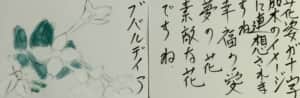 花姿が十字
木のイメージ
に連想されま
すね
幸福の愛
夢の花
素敵な花
ですね
ブバルディア